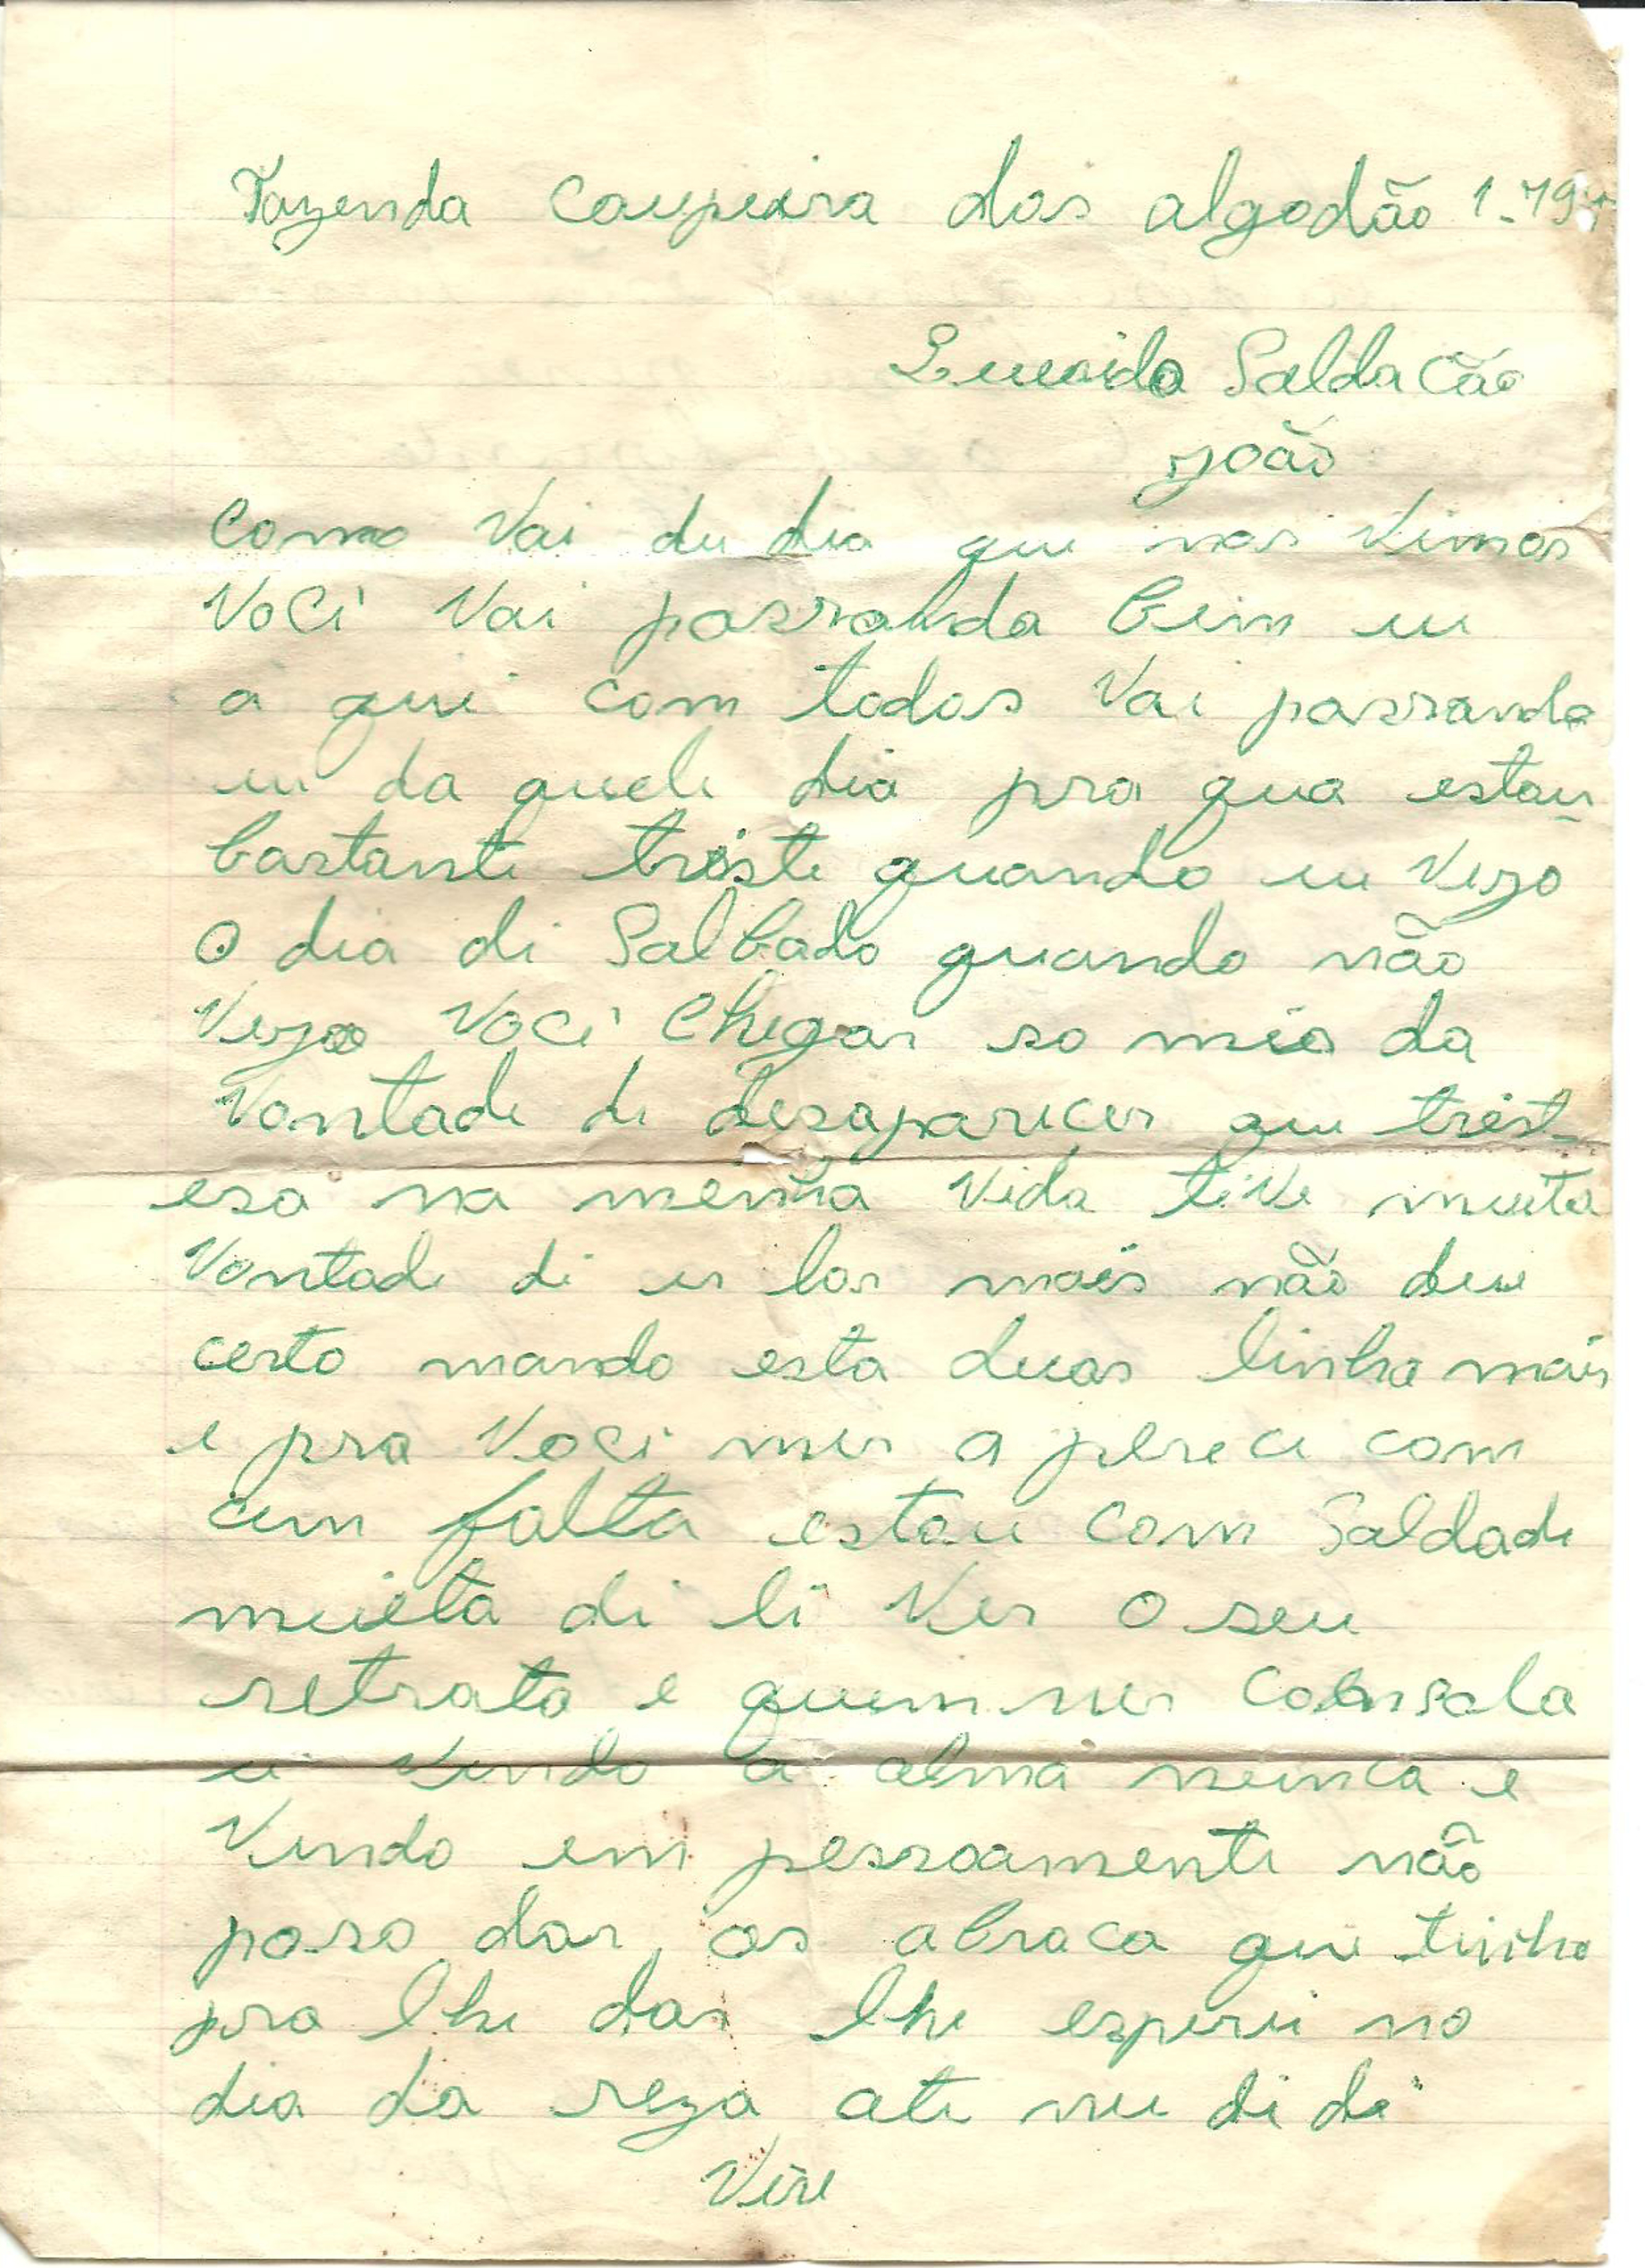 Fazenda Caupeira das algodão 1-197
Emvido SaldaCão
João
Como Vai du dia que nos Vimos
Voci Vai passando bem eu
a qui com todos Vai passando
eu da queli dia pra qua estou
bastanti tristi quando eu Vejo
O dia di Salbado quando não
Vejo Voci Chegar so mia da
Vontadi di desapariçer que trist-
esa na meinha Vida tiVi muita
Vontadi di ir las mais não deu
certo mando esta duas linha mais
e pra Voci mer a pereci com
um falta estou com Saldadi
muita di li Ver o seu
retrato e quem mer Consola
ei Vendo a alma nunca e
Vendo em pessoamenti não
poso dar os abraca que tinha
pra lhi dar lhi esperei no
dia da reza ati mei di di
Vire